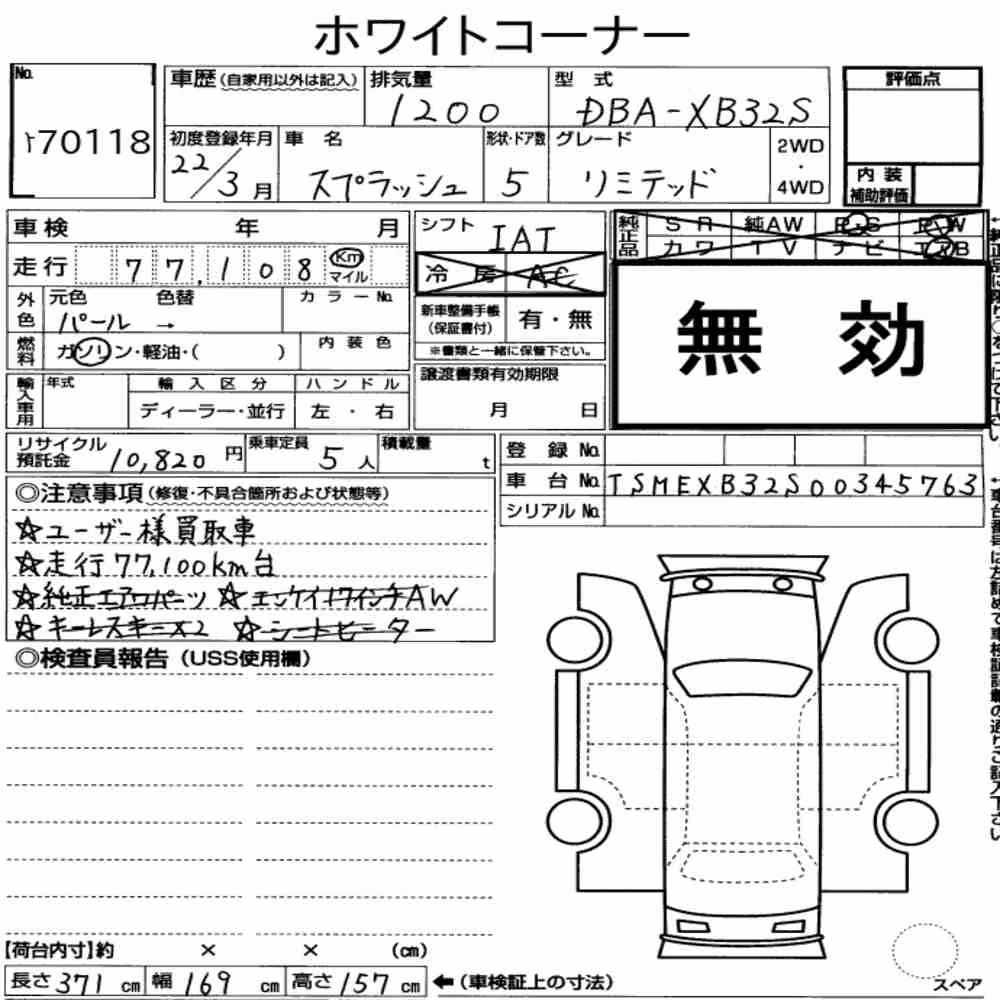 ホワイトコーナー
No.
70118
車歴(自家用以外は記入)
排気量
1200
型 式
DBA-XB32S
評価点
初度登録年月
22/3月
車 名
スプラッシュ
形状・ドア数
5
グレード
リミテッド
2WD
・
4WD
内 装
補助評価
車検 年 月
シフト
IAT
純正品
SR 純AW P・S P・W
カワ TV ナビ エアB
走行 77,108 Km
マイル
冷房 AC
外色
元色 色替
パール →
カラーNo.
新車整備手帳
(保証書付)
有・無
※書類と一緒に保管下さい。
無 効
燃料
ガソリン・軽油・( )
内装色
輸入車用
年式
輸入区分
ディーラー・並行
ハンドル
左 ・ 右
譲渡書類有効期限
月 日
リサイクル
預託金 10,820 円
乗車定員
5 人
積載量
t
登 録 No.
車 台 No. TSMEXB32S00345763
シリアル No.
◎注意事項(修復・不具合箇所および状態等)
☆ユーザー様買取車
☆走行77,100km台
☆純正エアロパーツ ☆エンケイ17インチAW
☆キーレスキー×2 ☆シートヒーター
◎検査員報告(USS使用欄)
【荷台内寸】約 × × (cm)
長さ 371 cm 幅 169 cm 高さ 157 cm ←(車検証上の寸法)
スペア